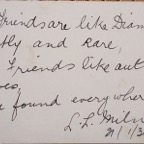 Friends are like Diam
tly and Rare,
Friends like aut
ves,
found everywher
L. L. Miln
21/1/3